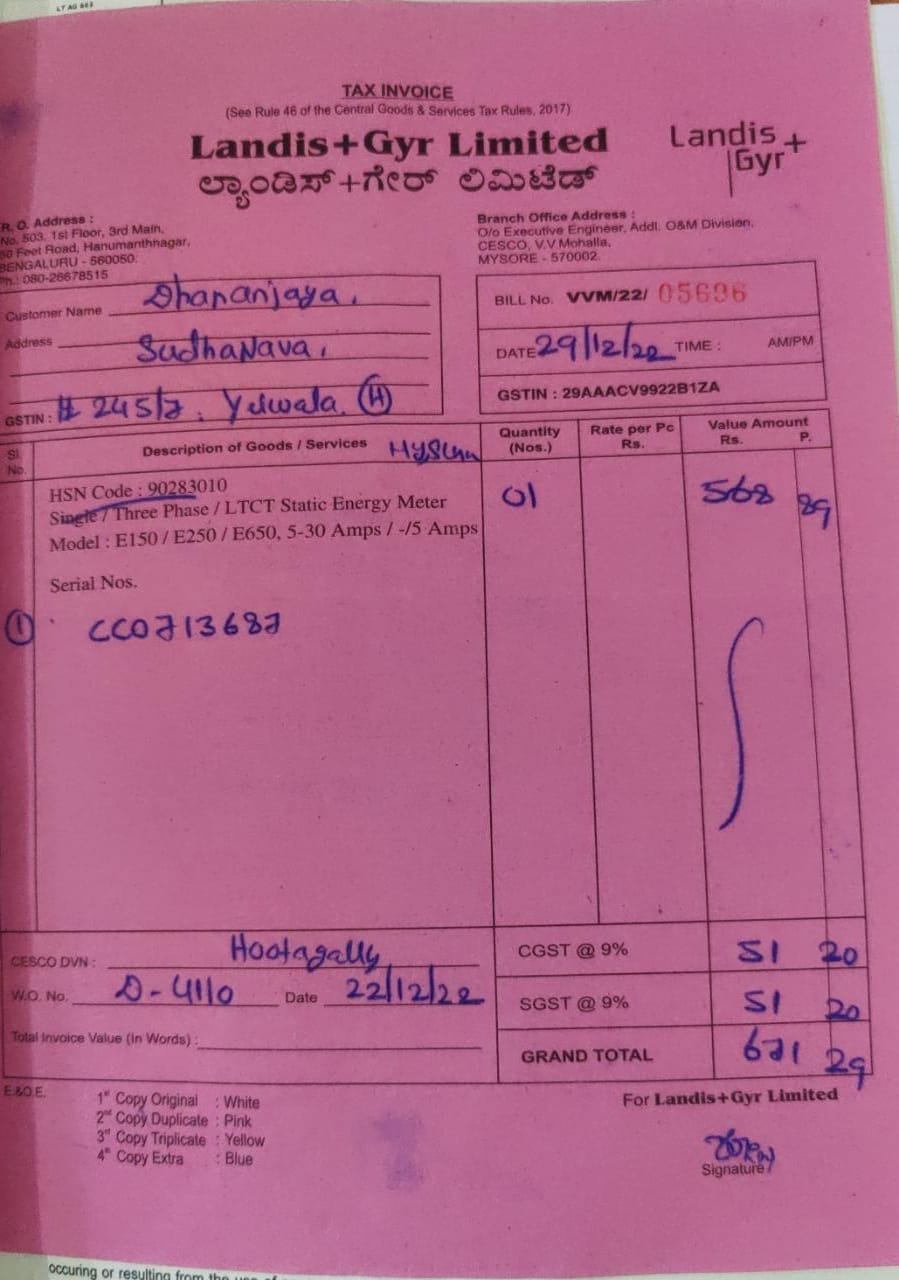 LT AG 663
TAX INVOICE
(See Rule 46 of the Central Goods & Services Tax Rules, 2017)
Landis+Gyr Limited
ಲ್ಯಾಂಡಿಸ್+ಗೇರ್ ಲಿಮಿಟೆಡ್
Landis
Gyr+
R. O. Address :
No. 503, 1st Floor, 3rd Main,
50 Feet Road, Hanumanthnagar,
BENGALURU - 560050.
Ph.: 080-26678515
Branch Office Address :
O/o Executive Engineer, Addl. O&M Division,
CESCO, V.V Mohalla,
MYSORE - 570002.
Customer Name Dhananjaya,
Address SudhaNava,
GSTIN : # 245/7, Yelwala, (H)
Mysuru
BILL No. VVM/22/ 05696
DATE 29/12/22 TIME : AM/PM
GSTIN : 29AAACV9922B1ZA
Sl. No. Description of Goods / Services Quantity (Nos.) Rate per Pc Rs. Value Amount Rs. P.
HSN Code : 90283010 01 568 89
Single / Three Phase / LTCT Static Energy Meter
Model : E150 / E250 / E650, 5-30 Amps / -/5 Amps
Serial Nos.
① CC0713687
CESCO DVN : Hootagally
W.O. No. D-4110 Date 22/12/22
Total Invoice Value (In Words) :
CGST @ 9% 51 20
SGST @ 9% 51 20
GRAND TOTAL 671 29
E.&O.E.
1st Copy Original : White
2nd Copy Duplicate : Pink
3rd Copy Triplicate : Yellow
4th Copy Extra : Blue
For Landis+Gyr Limited
Signature
occuring or resulting from the use of